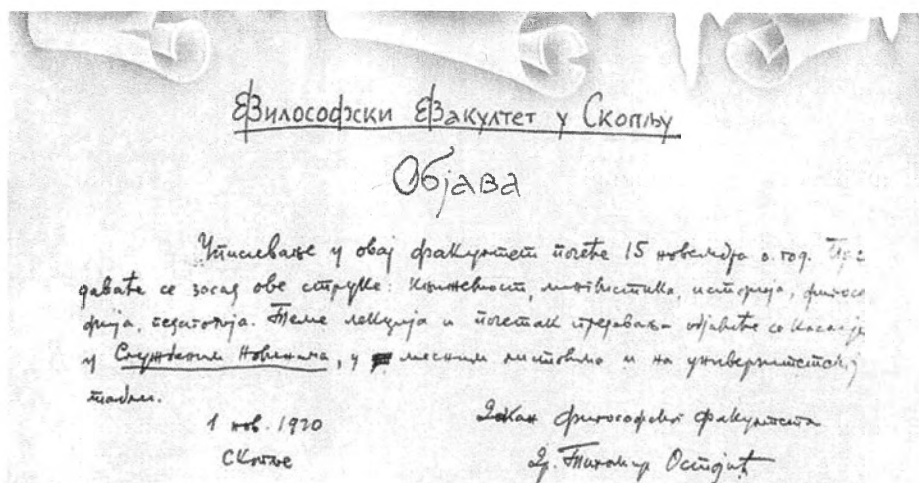 Философски Факултет у Скопљу
Објава
Уписивање у овај факултет почеће 15 новембра о. год. Пре
даваће се засад ове струке: књижевност, лингвистика, историја, филосо
фија, педагогија. Теме лекција и почетак предавања објавиће се касније
у Службеним Новинама, у месним листовима и на универзитетској
табли.
1 нов. 1920
Скопље
Декан философског факултета
Др. Тихомир Остојић